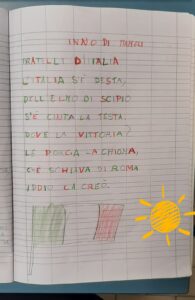 INNO DI MAMELI
FRATELLI D'ITALIA
L'ITALIA S'È DESTA,
DELL'ELMO DI SCIPIO
S'È CINTA LA TESTA.
DOVE LA VITTORIA?
LE PORGA LA CHIOMA,
CHE SCHIAVA DI ROMA
IDDIO LA CREÒ.